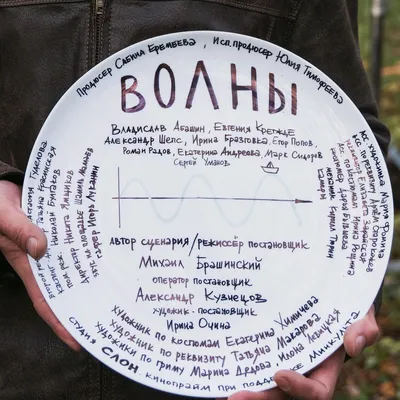 Продюсер Сабина Еремеева, Исп. продюсер Юлия Тимофеева
ВОЛНЫ
Владислав Абашин, Евгения Крегжде
Александр Шепс, Ирина Бразговка, Егор Попов,
Роман Радов, Екатерина Андреева, Марк Сидоров
Сергей Уманов
автор сценария/режиссёр постановщик
Михаил Брашинский
оператор постановщик
Александр Кузнецов
художник-постановщик
Ирина Очина
художник по костюмам Екатерина Химичева
художник по реквизиту Татьяна Макарова
художники по гриму Марина Дедова, Илона Левицкая
студия СЛОН, кинопрайм при поддержке Минкульта
асс. художника Мария Фомина
механик Кирилл
Николай Булгаков
Никита Ямщиков